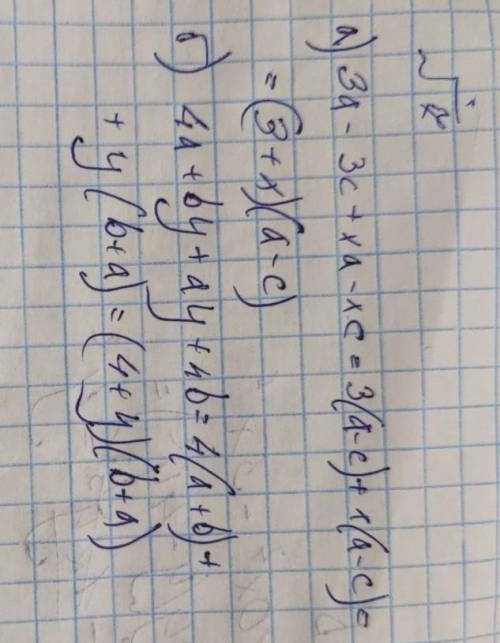 а) 3a - 3c + xa - xc = 3(a-c) + x(a-c) =
= (3+x)(a-c)
б) 4a + by + ay + 4b = 4(a+b) +
+ y(b+a) = (4+y)(b+a)